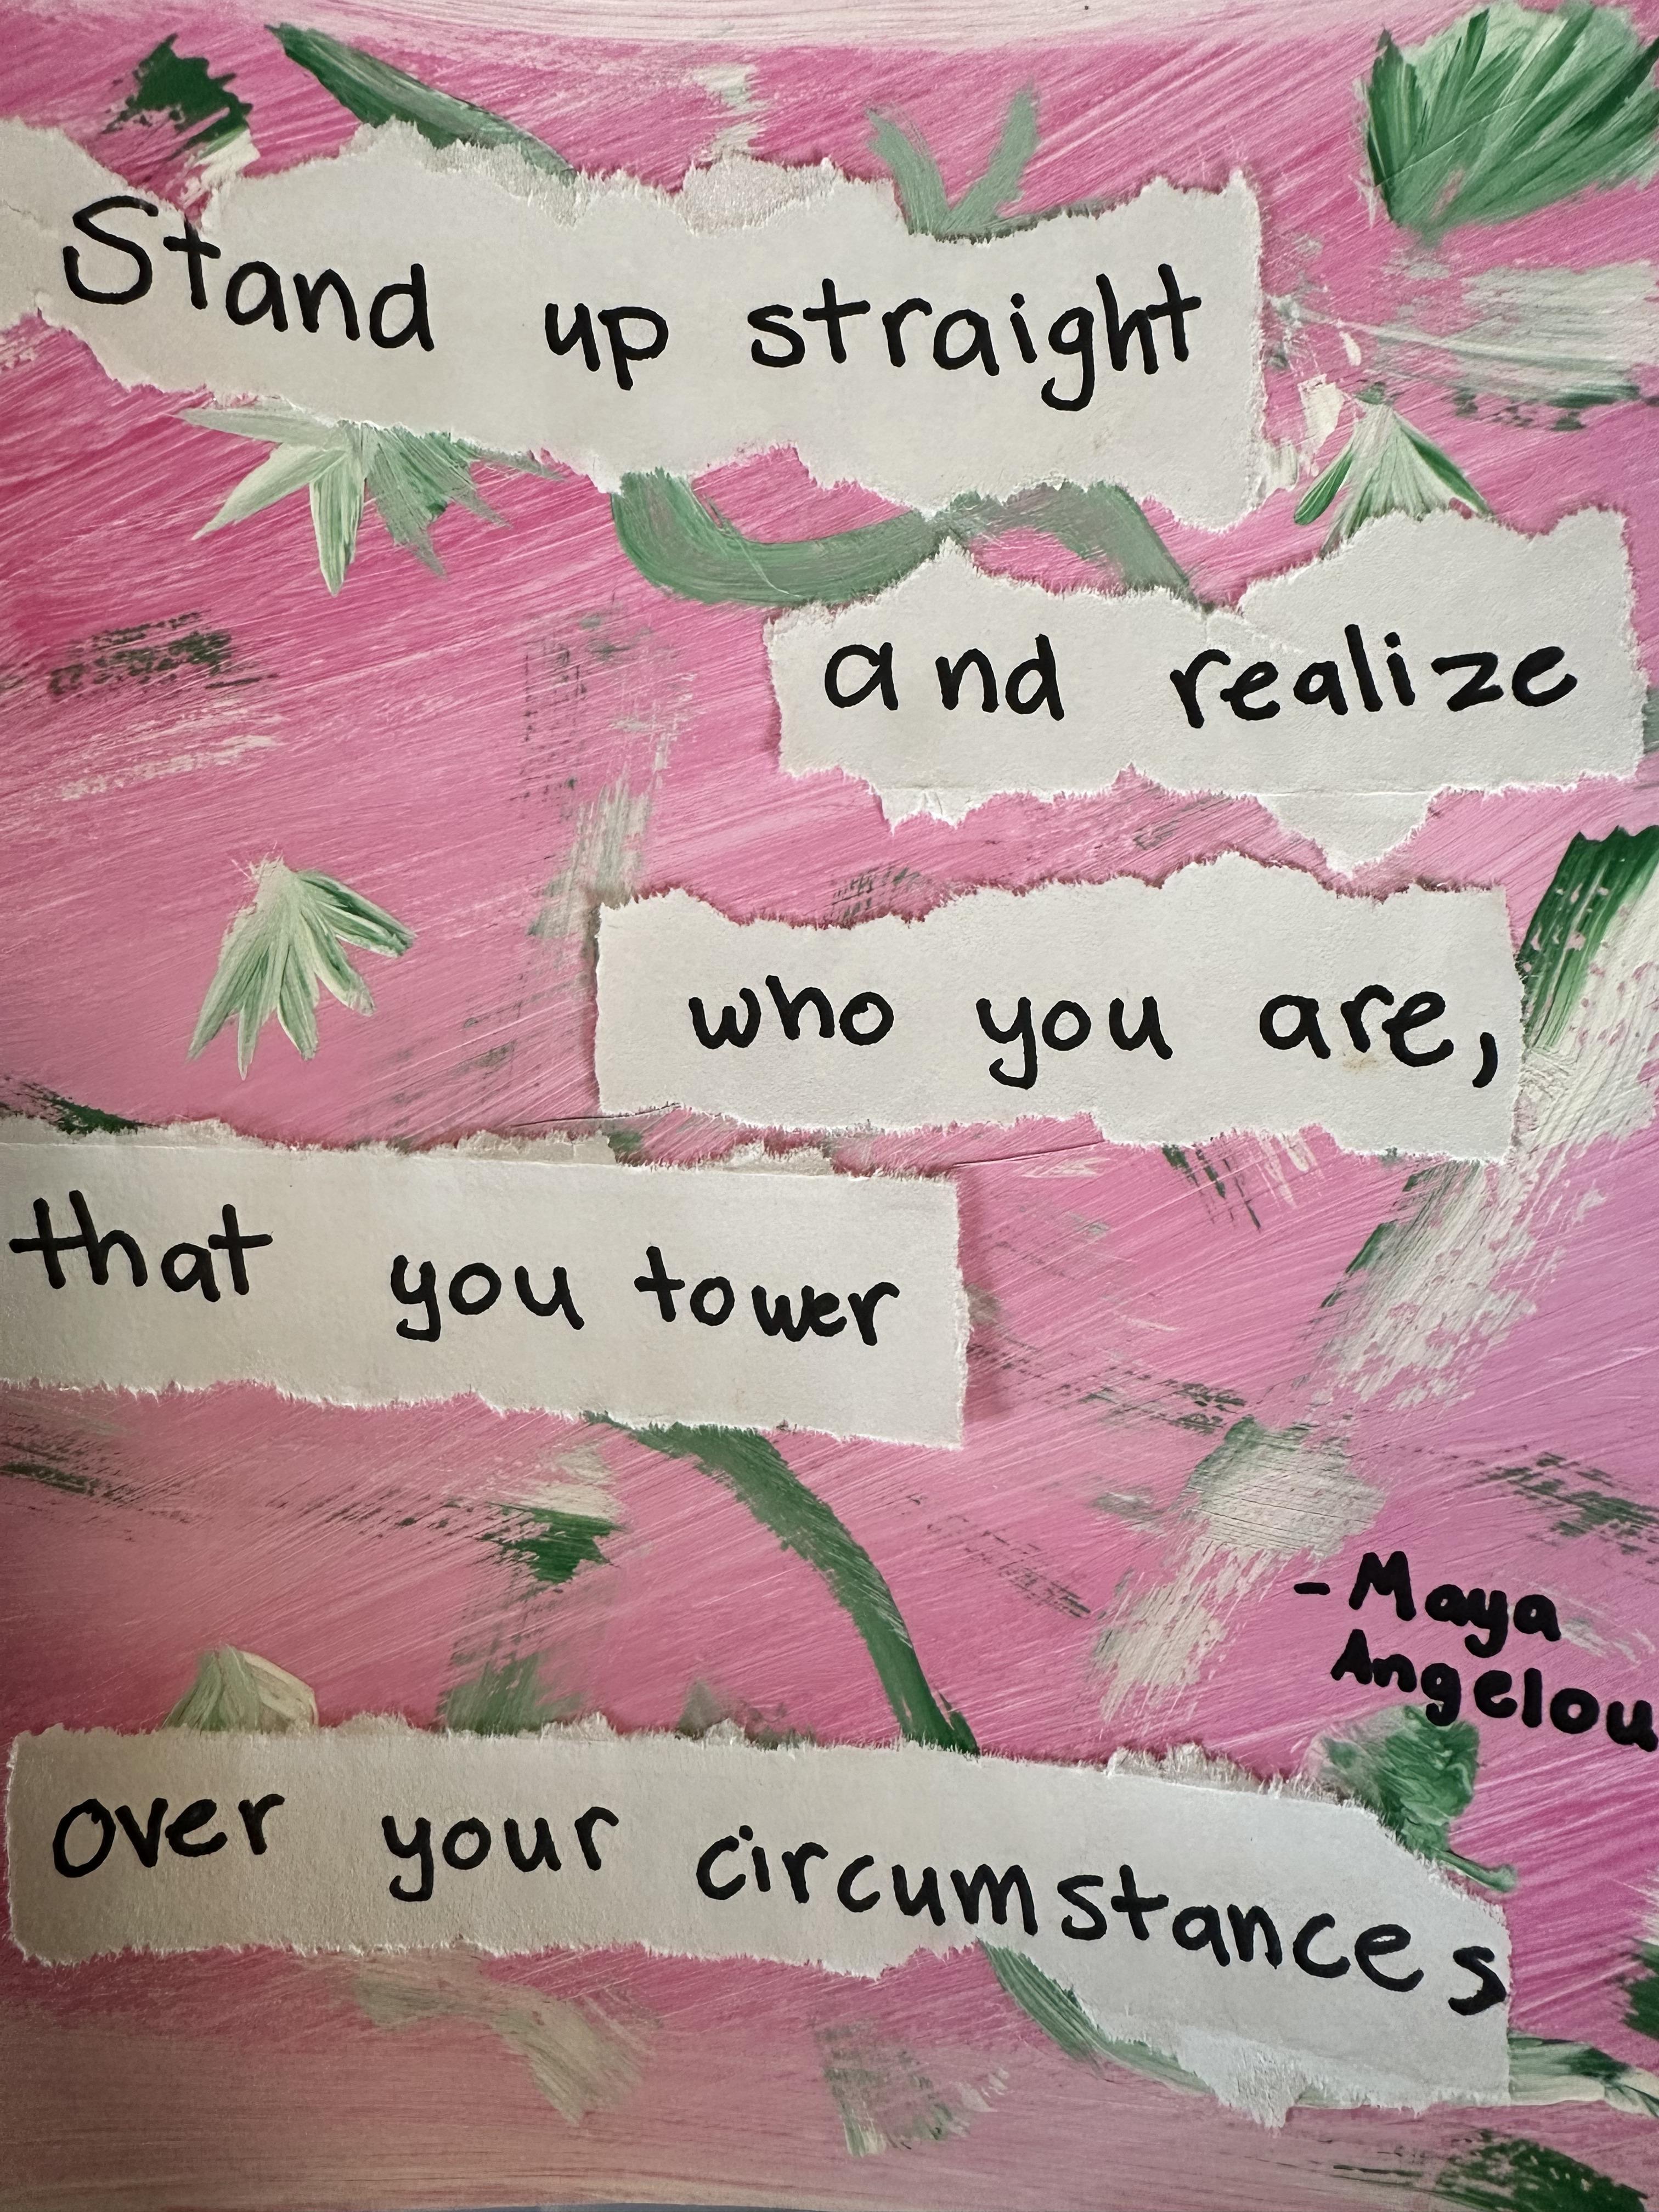 Stand up straight
and realize
who you are,
that you tower
over your circumstances
- Maya
Angelou